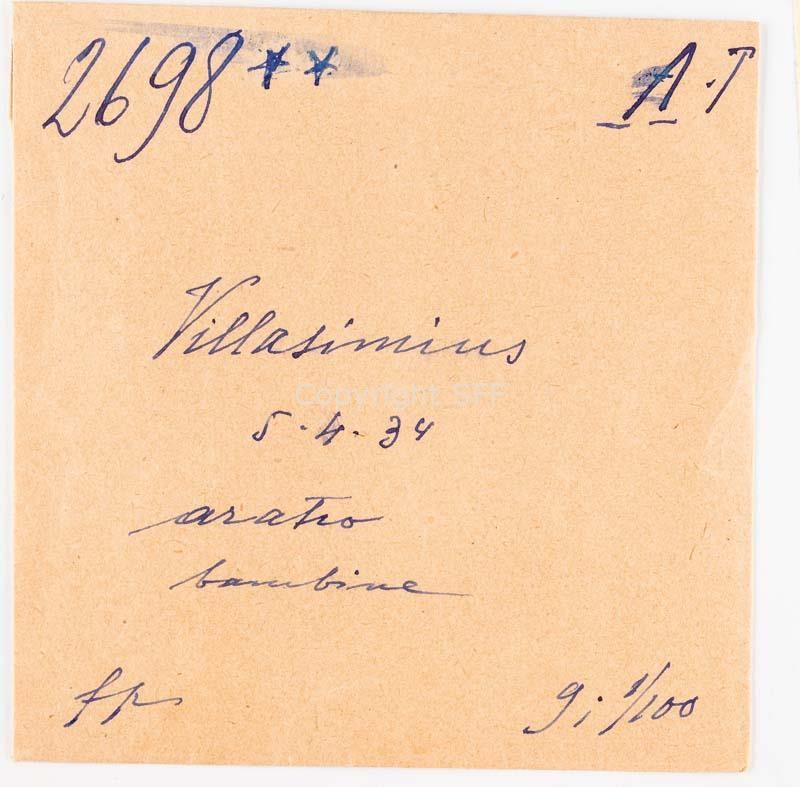 2698** A.T
Villasimius
Copyright SFF
5.4.34
aratro
bambine
fp
9; 1/100